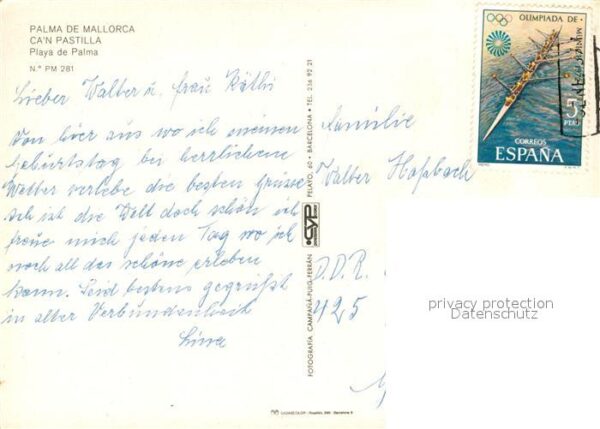 PALMA DE MALLORCA
CA'N PASTILLA
Playa de Palma
N.° PM 281
Lieber Walter u. Frau Käthi
Von hier aus wo ich meinen
Geburtstag bei herrlichem
Wetter verlebe die besten Grüsse
Ach ist die Welt doch schön ich
freue mich jeden Tag wo ich
noch all das schöne erleben
kann. Seid bestens gegrüßt
in alter Verbundenheit
FOTOGRAFÍA CAMPAÑÁ-PUIG FERRÁN
CYP
PELAYO, 60 • BARCELONA • TEL. 236 92 21
OLIMPIADA DE
MUNICH
5
PTAS
CORREOS
ESPAÑA
Familie
Walter
D.D.R.
925
privacy protection
Datenschutz